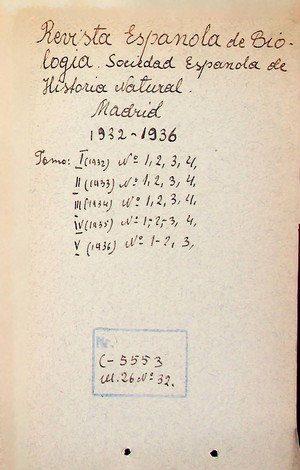 Revista Espanola de Bio-
logia. Sociedad Espanola de
Historia Natural.
Madrid
1932-1936
Tomo: I (1932) Nº 1, 2, 3, 4,
II (1933) Nº 1, 2, 3, 4,
III (1934) Nº 1, 2, 3, 4,
IV (1935) Nº 1-2-3, 4,
V (1936) Nº 1-2, 3,
Nr.
C-5553
M. 26 Nº 32.